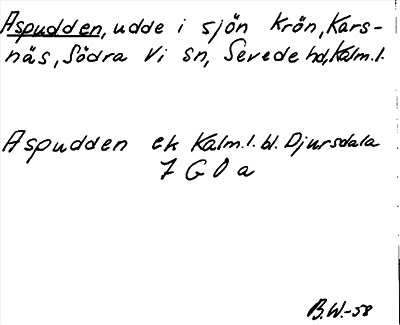 Aspudden, udde i sjön Krön, Kars-
näs, Södra Vi sn, Sevede hd, Kalm.l.
Aspudden ek Kalm.l. bl. Djursdala
7 G 0 a
B.W.-58